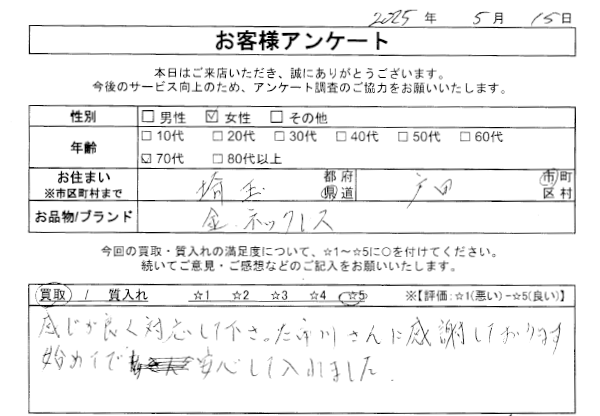 2025 年 5 月 15 日
お客様アンケート
本日はご来店いただき、誠にありがとうございます。
今後のサービス向上のため、アンケート調査のご協力をお願いいたします。
性別 □ 男性 ☑ 女性 □ その他
年齢 □ 10代 □ 20代 □ 30代 □ 40代 □ 50代 □ 60代
☑ 70代 □ 80代以上
お住まい ※市区町村まで 埼玉 都府県道 戸田 市町区村
お品物/ブランド 金.ネックレス
今回の買取・質入れの満足度について、☆1～☆5に○を付けてください。
続いてご意見・ご感想などのご記入をお願いいたします。
買取 / 質入れ ☆1 ☆2 ☆3 ☆4 ☆5 ※【評価:☆1(悪い)-☆5(良い)】
感じが良く対応して下さった市川さんに感謝しております
始めてで 安心して入れました.